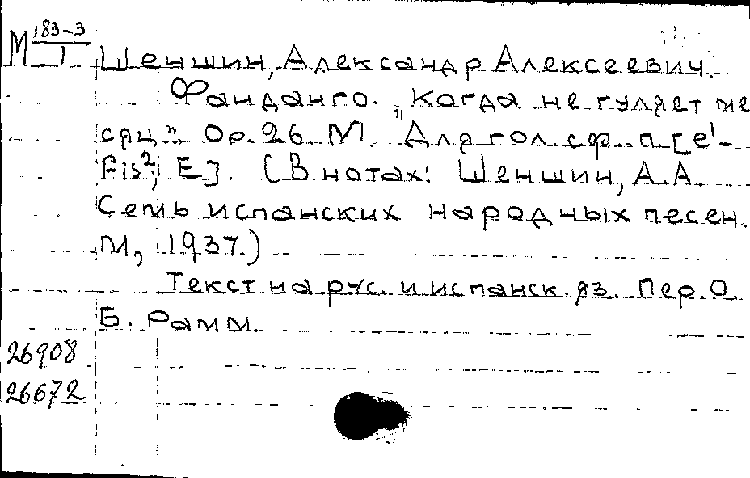 М 183-3/1 Шеншин, Александр Алексеевич.
Фанданго. „Когда не гуляет ме
сяц". Ор. 26. М. Для гол. с ф-п. [e¹-
Fis², E]. (В нотах: Шеншин, А.А.
Семь испанских народных песен.
М, 1937.)
Текст на рус. и испанск. яз. Пер. О.
Б. Рамм.
26908
26672